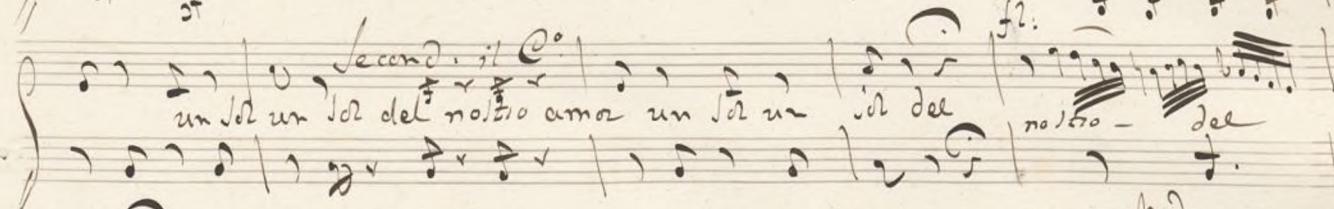 f2:
Second. il C°
un sol un sol del nostro amor un sol un sol del nostro - del